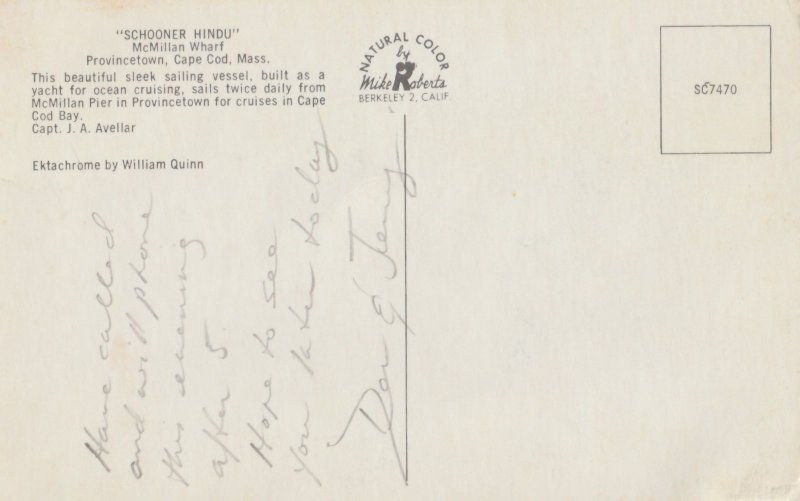 "SCHOONER HINDU"
McMillan Wharf
Provincetown, Cape Cod, Mass.
This beautiful sleek sailing vessel, built as a
yacht for ocean cruising, sails twice daily from
McMillan Pier in Provincetown for cruises in Cape
Cod Bay.
Capt. J. A. Avellar
Ektachrome by William Quinn
NATURAL COLOR
by
Mike Roberts
BERKELEY 2, CALIF.
SC7470
Have called
and will phone
this evening
after 5.
Hope to see
you later today
Don & Jenny